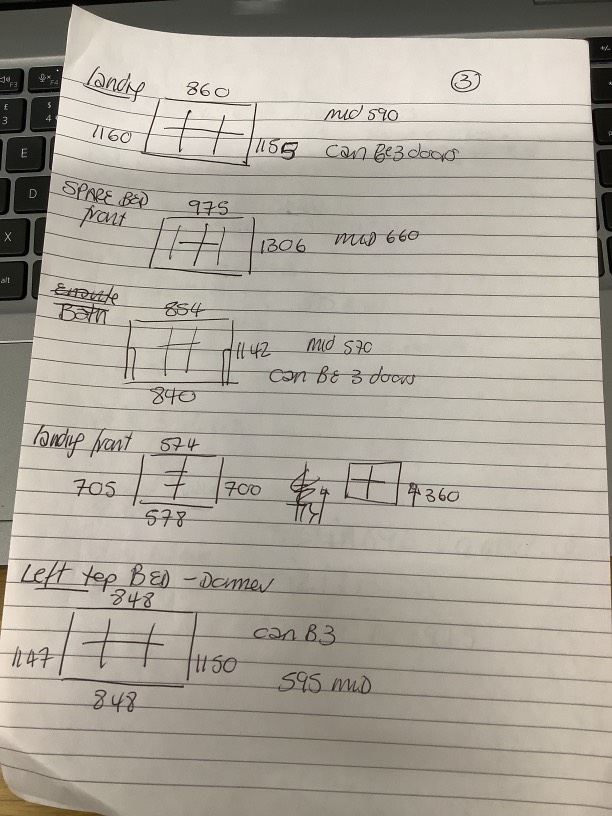 ③
Landg
860
mid 590
1160
1155
can Be 3 doors
SPARE BED
front
975
1306
mid 660
Ensuite
Bath
854
1142
mid 570
can BE 3 doors
840
Landg front
574
705
700
360
578
Left top BED - Dormer
848
can B. 3
1147
1150
595 mid
848